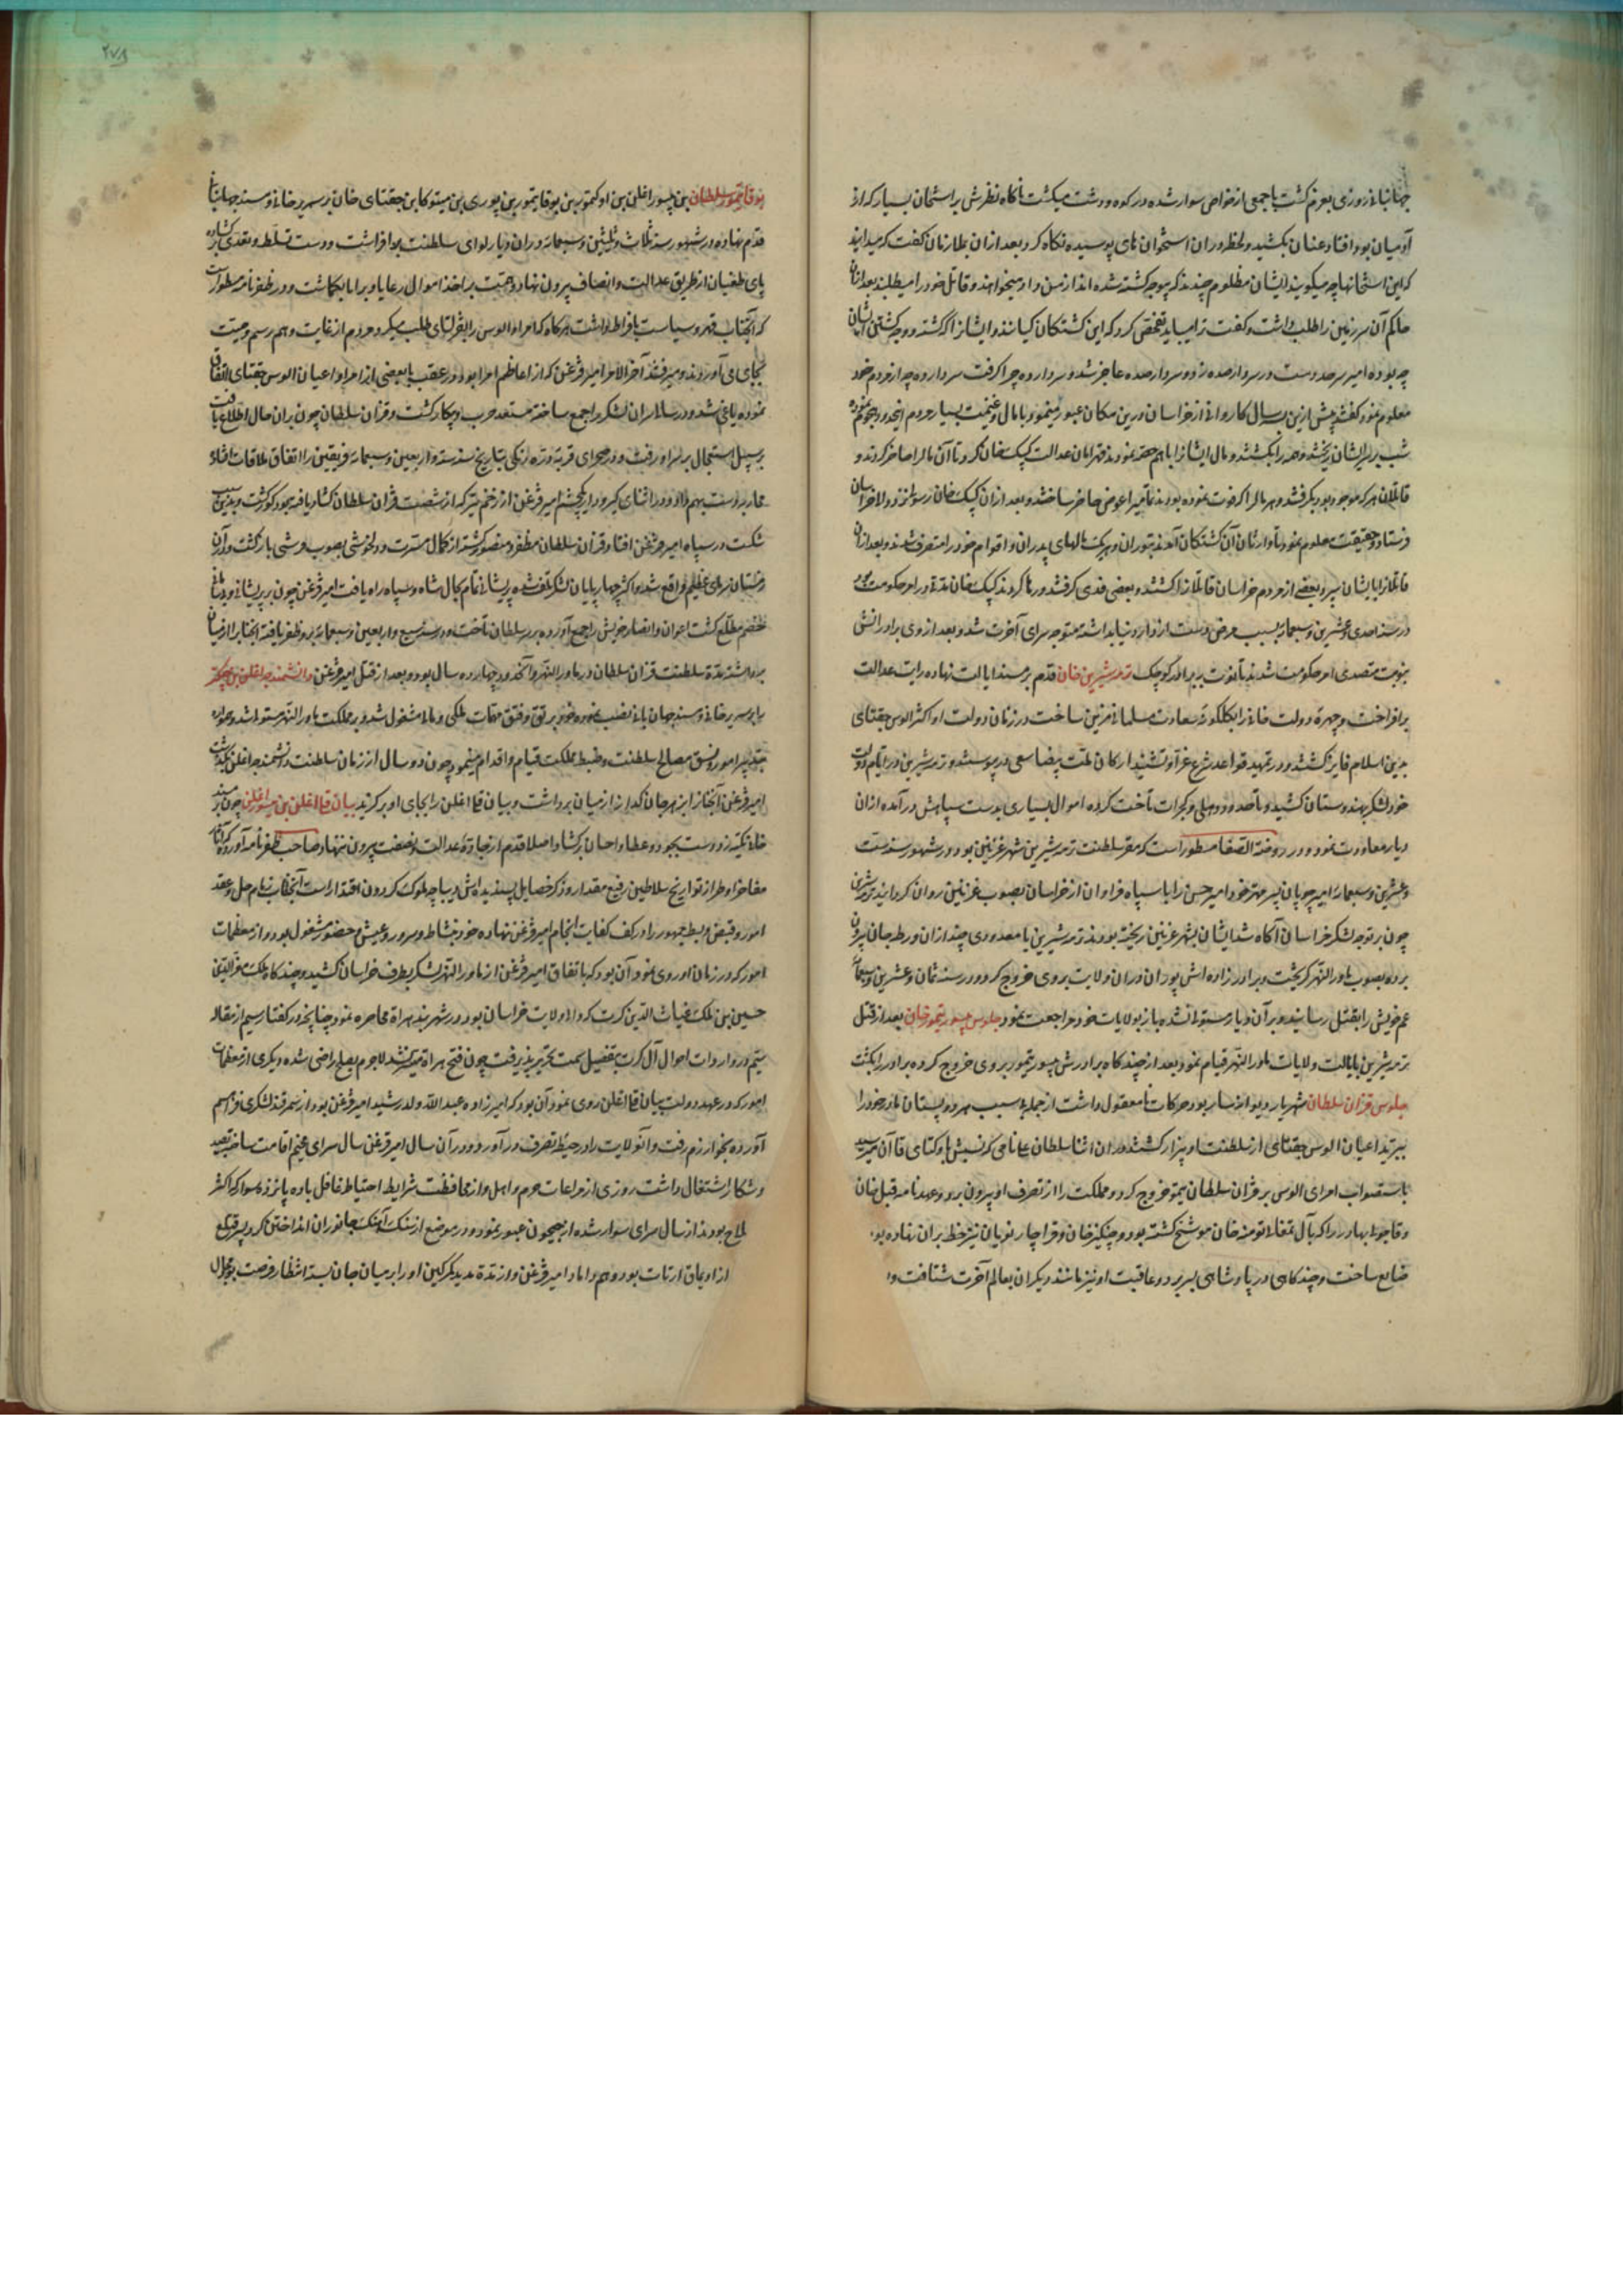 جهانبانی روزی بعزم گشت با جمعی از خواص سوار شده در کوه و دشت میکشت ناکاه نظرش بر استخوان بسیار که از
آدمیان بود افتاد عنان بکشید و لحظه در ان استخوان های پوسیده نکاه کرد بعد از ان بملازمان کفت که میدانید
که این استخوانها چه میکویند ایشان مظلومی چندند که بیوجه کشته شده اند از من داد میخواهند و قاتل خود را میطلبند بعد از ان
حاکم آن سرزمین را طلب داشت و کفت ترا میباید تفحص کرد که این کشتکان کیانند و ایشانرا که کشته و وجه کشتن ایشان
چه بوده امیر سرحد دست در سردار صده زد و سردار صده عاجز شد و سردار دهه را کرفت سردار دهه از مردم خود
معلوم نمود کفتند پیش ازین بسه سال کاروانی از خراسان درین مکان عبور مینمود با مال و غنیمت بسیار مردم اینحدود هجوم نموده
شب بر سر ایشان ریختند و همه را بکشتند و مال ایشانرا با هم حصه نمودند فرمان عدالت کپک خان کرد تا آن مال را حاضر کردند و
قاتلان هر که موجود بود بکرفتند و هر مال را که فوت نموده بودند تمامی را عوض حاضر ساختند و بعد از ان کپک خان رسولی نزد والی خراسان
فرستاد و حقیقت معلوم نمود تا وارثان آن کشتکان آمدند بتوران و هریک مالهای پدران و اقوام خود را متصرف شدند و بعد از ان
قاتلان را بایشان سپرد بعضی از مردم خراسان قاتلانرا کشتند و بعضی فدی کرفتند و رها کردند کپک خان مدتی در امر حکومت بود
در سنه احدی و عشرین و سبعمائه بسبب مرض دست از دار دنیا بداشته متوجه سرای آخرت شد و بعد از وی برادرانش
بنوبت متصدی امر حکومت شدند تا نوبت به برادر کوچک ترمه شیرین خان قدم بر مسند ایالت نهاده رایت عدالت
برافراخت و چهره دولت خانی را بکلکونه سعادت مسلمانی مزین ساخت در زمان دولت او اکثر الوس جغتای
بدین اسلام فایز کشتند و در تمهید قواعد شرع غرا و تشیید ارکان ملت بیضا سعی در پیوستند و ترمه شیرین در ایام دولت
خود لشکر بهندوستان کشید و تا حدود دهلی و کجرات تاخت کرده اموال بسیاری بدست سپاهش درآمده از ان
دیار معاودت نمود و در روضة الصفا مسطور است که مقر سلطنت ترمه شیرین شهر غزنین بود و در شهور سنه ست
و عشرین و سبعمائه امیر چوپان پسر مهتر خود امیر حسن را با سپاه فراوان از خراسان بصوب غزنین روان کردانید ترمه شیرین
چون بر توجه لشکر خراسان آکاه شد ایشان بشهر غزنین ریخته بودند ترمه شیرین با معدودی چند از ان ورطه جان بیرون
برده بصوب ماوراء النهر کریخت و برادرزاده اش پوران در ان ولایت بروی خروج کرد و در سنه ثمان و عشرین و سبعمائه
عم خویش را بقتل رسانید و بر آن دیار مستولی نشده باز بولایات خود مراجعت نمود جلوس جیسور تیمور خان بعد از قتل
ترمه شیرین بایالت ولایات ماوراء النهر قیام نمود بعد از چند کاه برادرش جیسور تیمور بروی خروج کرده برادر را بکشت
جلوس قزان سلطان شهریار دیوانه سار بود حرکات نامعقول داشت از جمله بی سبب هر دو پستان مادر خود را
ببرید اعیان الوس جغتای از سلطنت او بیزار کشتند در ان اثنا سلطان علی نامی که نسبتش باوکتای قاآن میرسید
باستصواب امرای الوس بر قزان سلطان بیمو خروج کرد و مملکت را از تصرف او بیرون برد و عهدنامه قبل خان
و قاجولی بهادر را که بآل تمغای تومنه خان موشح کشته بود و چنکیز خان و قراچار نویان نیز خط بر ان نهاده بود
ضایع ساخت و چند کاهی در پادشاهی بسر برد و عاقبت او نیز مانند دیکران بعالم آخرت شتافت و
بوقا تیمور سلطان بن جیسور اغلن بن اوکتمور بن بوقا تیمور بن بوری بن میتوکان بن جغتای خان بر سریر خانی و مسند جهانبانی
قدم نهاده در شهور سنه ثلاث و ثلثین و سبعمائه در ان دیار لوای سلطنت برافراشت و دست تسلط و تعدی کشاده
پای طغیان از طریق عدالت و انصاف بیرون نهاد و همت بر اخذ اموال رعایا و برایا بکماشت و در ظفرنامه مسطور است
که آنجناب قهر و سیاست بافراط داشت هر کاه که امراء الوس را بقرلتای طلب میکرد مردم از غایت وهم رسم وصیت
بجای می آوردند و میرفتند آخر الامر امیر قزغن که از اعاظم امرا بود در عقب با بعضی از امرا و اعیان الوس جغتای اتفاق
نموده یاغی شد و در سالی سران لشکر را جمع ساخته مستعد حرب و پیکار کشت و قزان سلطان چون بر ان حال اطلاع یافت
بر سبیل استعجال بر سر او رفت و در صحرای قریه دره زنکی بتاریخ سنه ست و اربعین و سبعمائه فریقین را اتفاق ملاقات افتاد
محاربه دست بهم داد و در اثنای کیر و دار یکچشم امیر قزغن از زخم تیر که از شصت قزان سلطان کشاد یافته بود کور کشت و بدین سبب
شکست در سپاه امیر قزغن افتاد و قزان سلطان مظفر و منصور کشته از کمال مسرت و دلخوشی بصوب قرشی بازکشت و در آن
زمستان سرمای عظیم واقع شد و اکثر چهارپایان لشکر تلف شده پریشانی تمام بحال شاه و سپاه راه یافت امیر قزغن چون بر پریشانی و یرغای
خصم مطلع کشت اعوان و انصار خویش را جمع آورده بر سر سلطان تاخت و در سنه سبع و اربعین و سبعمائه برو ظفر یافته آنجناب را از میان
برداشت مدت سلطنت قزان سلطان در ماوراء النهر و آنحدود چهارده سال بود و بعد از قتل امیر قزغن دانشمندجه اغلن بن
را بر سریر خانی و مسند جهانبانی نصب نموده خود برتق و فتق مهمات ملکی و مالی مشغول شد و بر مملکت ماوراء النهر مستولی شد و همواره
بتدبیر امور و نسق مصالح سلطنت و ضبط مملکت قیام و اقدام مینمود چون دو سال از زمان سلطنت دانشمندجه اغلن بکذشت
امیر قزغن آنجناب را نیز هر جانکداز از میان برداشت و بیان قلی اغلن را بجای او برکزید بیان قلی اغلن بن جیسور اغلن چون بر مسند
خانی تکیه زد دست بجود و عطا و احسان برکشاد و اصلا قدم از جاده عدالت و نصفت بیرون ننهاد صاحب ظفرنامه آورده که آثار
مفاخر او طراز تواریخ سلاطین رفیع مقدار و ذکر خصایل پسندیده اش دیباچه ملوک کردون اقتدار است آنجناب زمام حل و عقد
امور و قبض و بسط جمهور را در کف کفایت انجام امیر قزغن نهاده خود بنشاط و سرور و عیش و حضور مشغول بود و از معظمات
امور که در زمان او روی نمود آن بود که باتفاق امیر قزغن از ماوراء النهر لشکر بطرف خراسان کشید و چند کاه ملک معز الدین
حسین بن ملک غیاث الدین کرت که والی ولایت خراسان بود در شهربند هراة محاصره نمود چنانچه در کفتار سیم از مقاله
سیم در واردات احوال آل کرت بتفصیل سمت تحریر پذیرفت چون فتح هراة میسر نشد لاجرم بصلح راضی شده و دیکری از معظمات
امور که در عهد دولت بیان قلی اغلن روی نمود آن بود که امیرزاده عبد الله ولد رشید امیر قزغن بود از سمرقند لشکری فراهم
آورده بخوارزم رفت و آنولایت را در حیطه تصرف درآورد و در آن سال امیر قزغن سال سرای مخیم اقامت ساخته بصید
و شکار اشتغال داشت روزی از مراعات حزم و اهمال و از محافظت شرایط احتیاط غافل با ده پانزده سوار که اکثر
ملاح بودند از سال سرای سوار شده از جیحون عبور نمود و در موضع از سنک آهنک جانوران انداختن کرد پسر قتلغ
از اویماق ارتات بود و هم داماد امیر قزغن و از مدتی مدید کمر کین او را بر میان جان بسته انتظار فرصت بود بحوالی